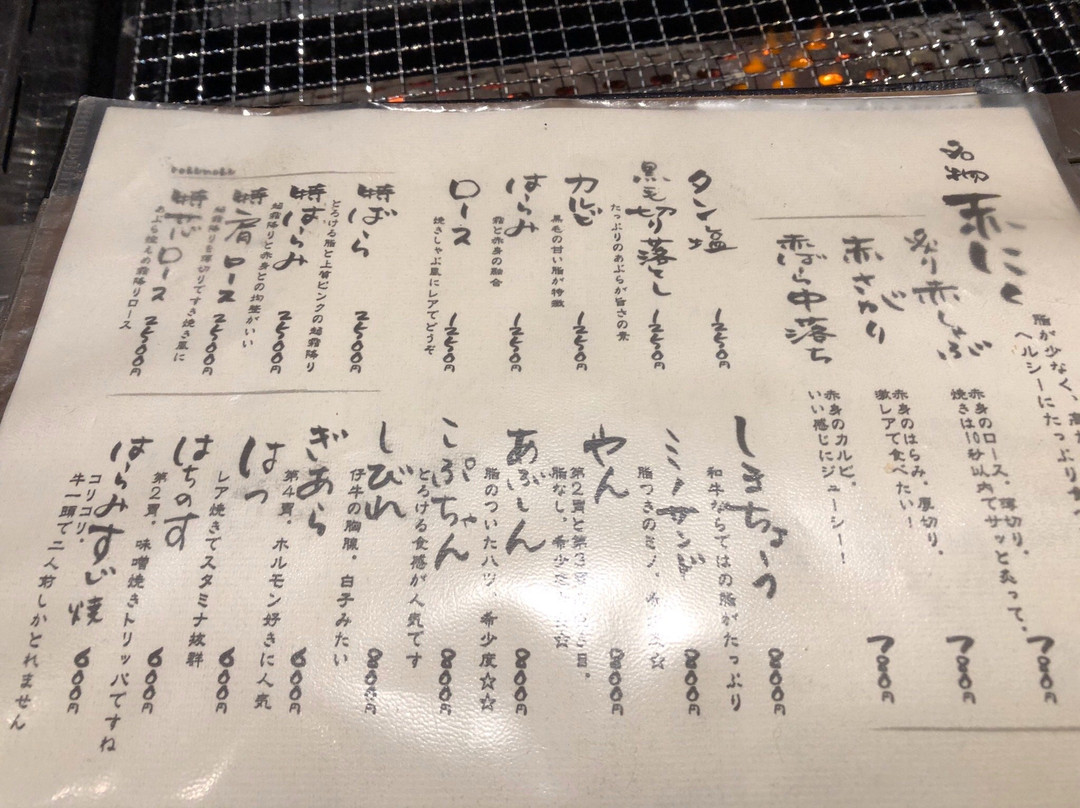 名物
赤にく
脂が少なく、高
ヘルシーにたっぷり
炙り赤しゃぶ
赤身のロース。薄切り。
焼きは10秒以内でサッと炙って。
780円
赤さがり
赤身のはらみ。厚切り。
激レアで食べたい！
780円
赤ばら中落ち
赤身のカルビ。
いい感じにジューシー！
780円
タン塩
1250円
黒毛切り落とし
たっぷりのあぶらが旨さの素
1250円
カルビ
黒毛の甘い脂が特徴
1250円
はらみ
霜と赤身の融合
1250円
ロース
焼きしゃぶ風にレアでどうぞ
1250円
特ばら
とろける脂と上質ピンクの超霜降り
2500円
特はらみ
超霜降りと赤身との均整がいい
2500円
特肩ロース
超霜降りを薄切りですき焼き風に
2500円
特芯ロース
あぶら控えめ霜降りロース
2500円
しきちょーう
和牛ならではの脂がたっぷり
800円
ミノサンド
脂つきのミノ。希少
800円
やん
第2胃と第3胃のつなぎ目。
脂なし。希少
800円
あぶしん
脂のついたハツ。希少度☆☆
800円
こぷちゃん
とろける食感が人気です
800円
しびれ
仔牛の胸腺。白子みたい
800円
ぎあら
第4胃。ホルモン好きに人気
600円
はつ
レア焼きでスタミナ抜群
600円
はちのす
第2胃。味噌焼きトリッパですね
600円
はらみすじ焼
コリコリ。
牛一頭で二人前しかとれません
600円